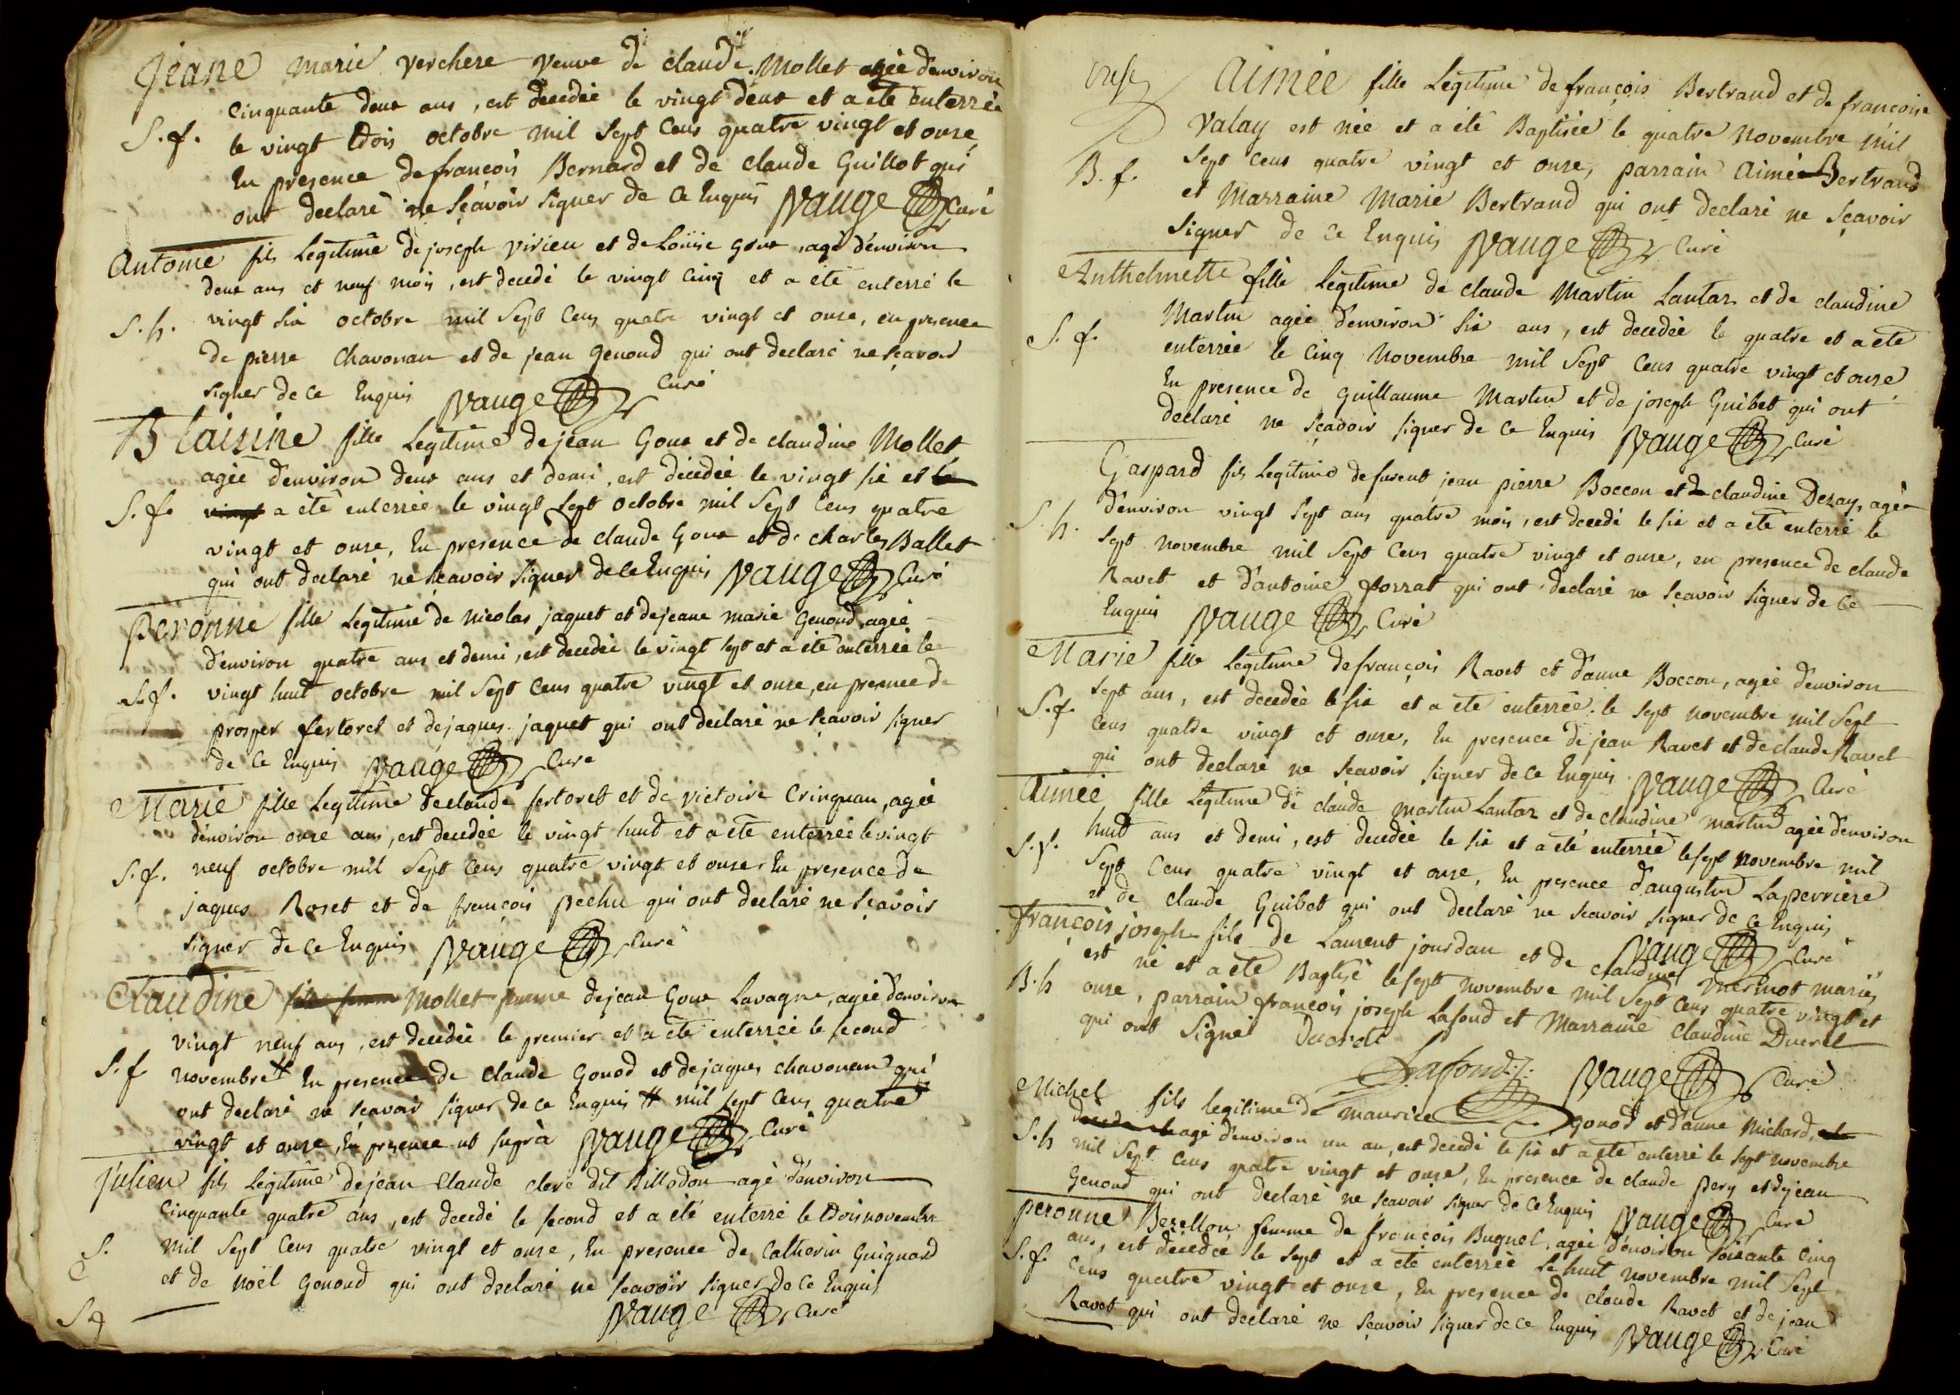 Jeane marie verchere veuve de claude Mollet agée d'environ
cinquante deux ans, est decedée le vingt deux et a eté enterrée
S. f. le vingt trois octobre mil sept cens quatre vingt et onze,
En presence de francois Bernard et de claude Guillot qui
ont declaré ne sçavoir signer de ce Enquis pvauge Curé
Antoine fils Legitime de joseph virieu et de Loüise goux, agé d'environ
deux ans et neuf mois, est decedé le vingt cinq et a eté enterré le
S. h. vingt six octobre mil sept cens quatre vingt et onze, en presence
de pierre Chavonan et de jean genoud qui ont declaré ne sçavoir
signer de ce Enquis pvauge Curé
Blaisine fille Legitime de jean Goux et de claudine Mollet
agée d'environ deux ans et demi, est décédée le vingt six et le
S. f. vingt a été enterrée le vingt sept octobre mil sept cens quatre
vingt et onze, En presence de claude Goux et de charles Ballet
qui ont declaré ne sçavoir signer de ce Enquis pvauge Curé
peronne fille Legitime de Nicolas jaquet et de jeane marie genoud, agée
d'environ quatre ans et demi, est decedée le vingt sept et a eté enterrée le
S. f. vingt huit octobre mil sept cens quatre vingt et onze, en presence de
prosper fertoret et de jaques jaquet qui ont declaré ne sçavoir signer
de ce Enquis pvauge Curé
Marie fille Legitime de claude fertoret et de victoire Crinquan, agée
d'environ onze ans, est decedée le vingt huit et a eté enterrée le vingt
S. f. neuf octobre mil sept cens quatre vingt et onze En presence de
jaques Roset et de françois pechu qui ont declaré ne sçavoir
signer de ce Enquis pvauge Curé
Claudine Mollet femme de jean Goux Lavagne, agée d'environ
vingt neuf ans, est decedée le premier et a eté enterrée le second
S. f novembre # En presence de claude Gonod et de jaques chavonan qui
ont declaré ne sçavoir signer de ce Enquis # mil sept cens quatre
vingt et onze, En presence ut suprà pvauge Curé
julien fils Legitime de jean claude clerc dit Billodon agé d'environ
cinquante quatre ans, est decedé le second et a été enterré le trois novembre
S. mil sept cens quatre vingt et onze, En presence de Catherin Guignard
et de noël genoud qui ont declaré ne sçavoir signer de ce Enquis
pvauge Curé
Aimée fille Legitime de françois Bertrand et de francoise
valay est née et a été Baptisée le quatre Novembre mil
B. f. sept cens quatre vingt et onze, parrain Aimé Bertrand
et Marraine Marie Bertrand qui ont declaré ne sçavoir
signer de ce Enquis pvauge Curé
Anthelmette fille Legitime de claude Martin Lantaz et de claudine
Martin agée d'environ six ans, est decedée le quatre et a eté
S. f. enterrée le cinq Novembre mil sept cens quatre vingt et onze
En presence de guillaume Martin et de joseph Guibet qui ont
declaré ne sçavoir signer de ce Enquis pvauge Curé
Gaspard fils Legitime de furent jean pierre Boccon et de claudine Dezay, agée
d'environ vingt sept ans quatre mois, est decedé le six et a eté enterré le
S. h. sept novembre mil sept cens quatre vingt et onze, en presence de claude
Ravet et d'antoine forrat qui ont declaré ne sçavoir signer de ce
Enquis pvauge Curé
Marie fille Legitime de françois Ravet et d'anne Boccon, agée d'environ
sept ans, est decedée le six et a eté enterrée le sept novembre mil sept
S. f. cens quatre vingt et onze, En presence de jean Ravet et de claude Ravet
qui ont declaré ne sçavoir signer de ce Enquis pvauge Curé
Aimée fille Legitime de claude martin Lantaz et de claudine martin agée d'environ
huit ans et demi, est decedée le six et a été enterrée le sept novembre mil
S. f. sept cens quatre vingt et onze, En presence d'augustin Laperrière
et de claude Guibet qui ont declaré ne sçavoir signer de ce Enquis
pvauge Curé
françois joseph fils de Laurent jourdan et de claudine mermot mariés
est né et a eté Baptisé le sept novembre mil sept cens quatre vingt et
B. h onze, parrain francois joseph Lafond et Marraine claudine Ducret
qui ont signé Ducret
Lafond pvauge Curé
Michel fils legitime de maurice gonod et d'anne Michard,
agé d'environ un an, est decedé le six et a eté enterré le sept novembre
S. h mil sept cens quatre vingt et onze, En presence de claude pery et de jean
Genoud qui ont declaré ne sçavoir signer de ce Enquis pvauge Curé
peronne Bezellon femme de francois Bugnot, agée d'environ soixante cinq
ans, est décédée le sept et a eté enterrée le huit novembre mil sept
S. f. cens quatre vingt et onze, En presence de claude Ravet et de jean
Ravet qui ont declaré ne sçavoir signer de ce Enquis pvauge Curé